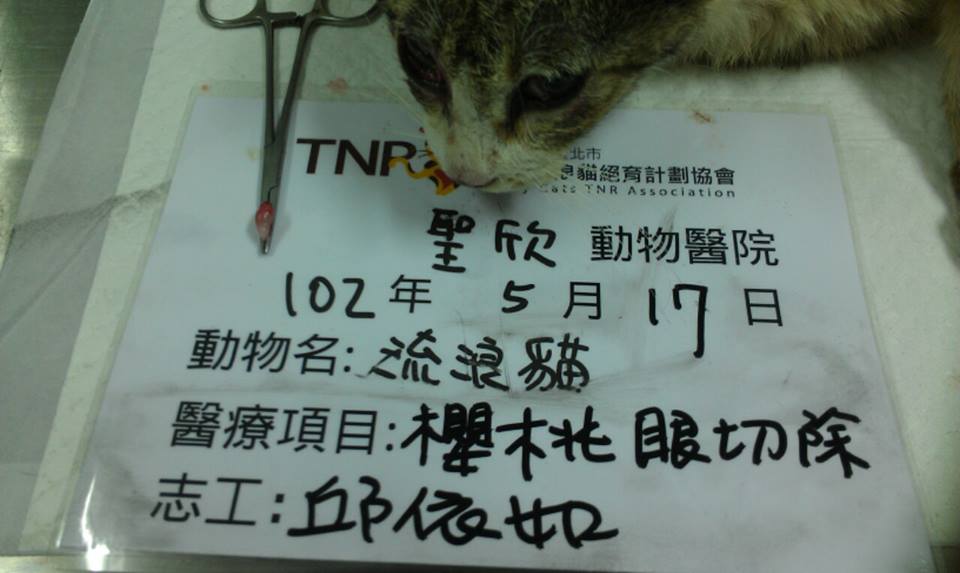 TNR
北市
浪貓絕育計劃協會
Cats TNR Association
聖欣 動物醫院
102年 5月 17日
動物名:流浪貓
醫療項目:櫻桃眼切除
志工:邱依如